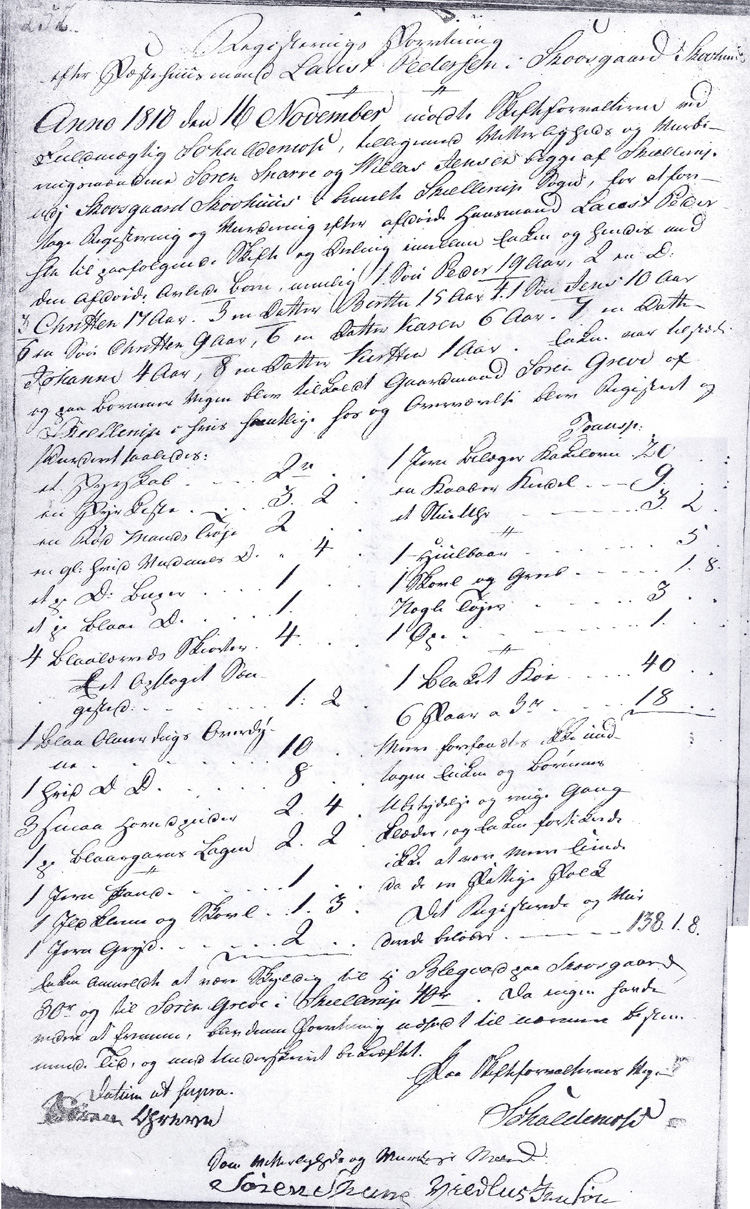 252.
Registerings Forretning
efter Fæstehuusmand Laust Pedersen i Skovsgaard Skovhuus
Anno 1810 den 16 November mødte Skifteforvalterne ved
Fuldmægtig Schaldemose, tilligemed Vitterligheds og Vurde-
ringsmændene Søren Snarre og Niklas Jensen begge af Skiellerup
udj Skovsgaard Skovhuus i bemelte Skiellerup Sogn, for at fore-
tage Registering og Vurdering efter afdøde Huusmand Laust Peder
sen til paafølgende Skifte og Deeling imellem Enken og hendes med
den Afdøde Avlede Børn, nemlig 1 Søn Peder 19 Aar, 2 en D:
Christen 17 Aar. 3 en Datter Berthe 15 Aar 4. 1 Søn Jens 10 Aar
5 en Søn Christen 9 Aar, 6 en Datter Karen 6 Aar. 7 en Datter
Johanne 4 Aar, 8 en Datter Kirsten 1 Aar. Enken var tilstede
og paa Børnenes Vegne blev tilkaldt Gaardmand Søren Greve af
Skiellerup i hvis samtlige hos og Overværelse blev Registeret og
Vurderet saaledes:
et Skab 2
en Kiste 3 2
en Rød Mands Trøje 2
en gl: hvid Vadmels D. " 4
et p D: Buxer 1
et p blaa D. 1
4 Blaalærreds Skiorter 4
Et Opslaget Sen
gested 1: 2
1 Blaa Olmerdugs Overdy-
ne 10
1 hvid D D. 8
3 smaa Hovedpuder 2 4
1 p Blaargarns Lagen 2 2
1 Jern Pande 1
1 Ildklemme og Skovl 1. 3
1 Jern Gryde 2
Transp:
1 Jern Bilægger Kakelovn 20
en Kaaber Kiedel 9
et Stue Uhr 3 2
1 Hiulbaar 5
1 Skovl og Greb 1. 8
Nogle Tøjer 3
1 Øxe 1
1 Blaket Koe 40
6 Faar a 3 18
Mere forefandtes ikke und-
tagen Enken og Børnenes
Ubetydelige og ringe Gang
Klæder, og Enken forsikrede
ikke at vær mere Eiende
da de er Fattige Folk
Det Registerede og Vur
derede beløber 138. 1. 8.
Enken anmeldte at være skyldig til Hr Blegvad paa Skovsgaard
30 og til Søren Greve i Skiellerup 40. Da ingen havde
videre at fremme, blev denne Forretning udsadt til nærmere bestem-
mende Tid, og med Underskrivt bekræftet.
Datum ut supra.
Paa Skifteforvalternes Vegne
Søren
Schaldemose
Som Vitterligheds og Vurderings Mænd
Søren Niedlus Jensen